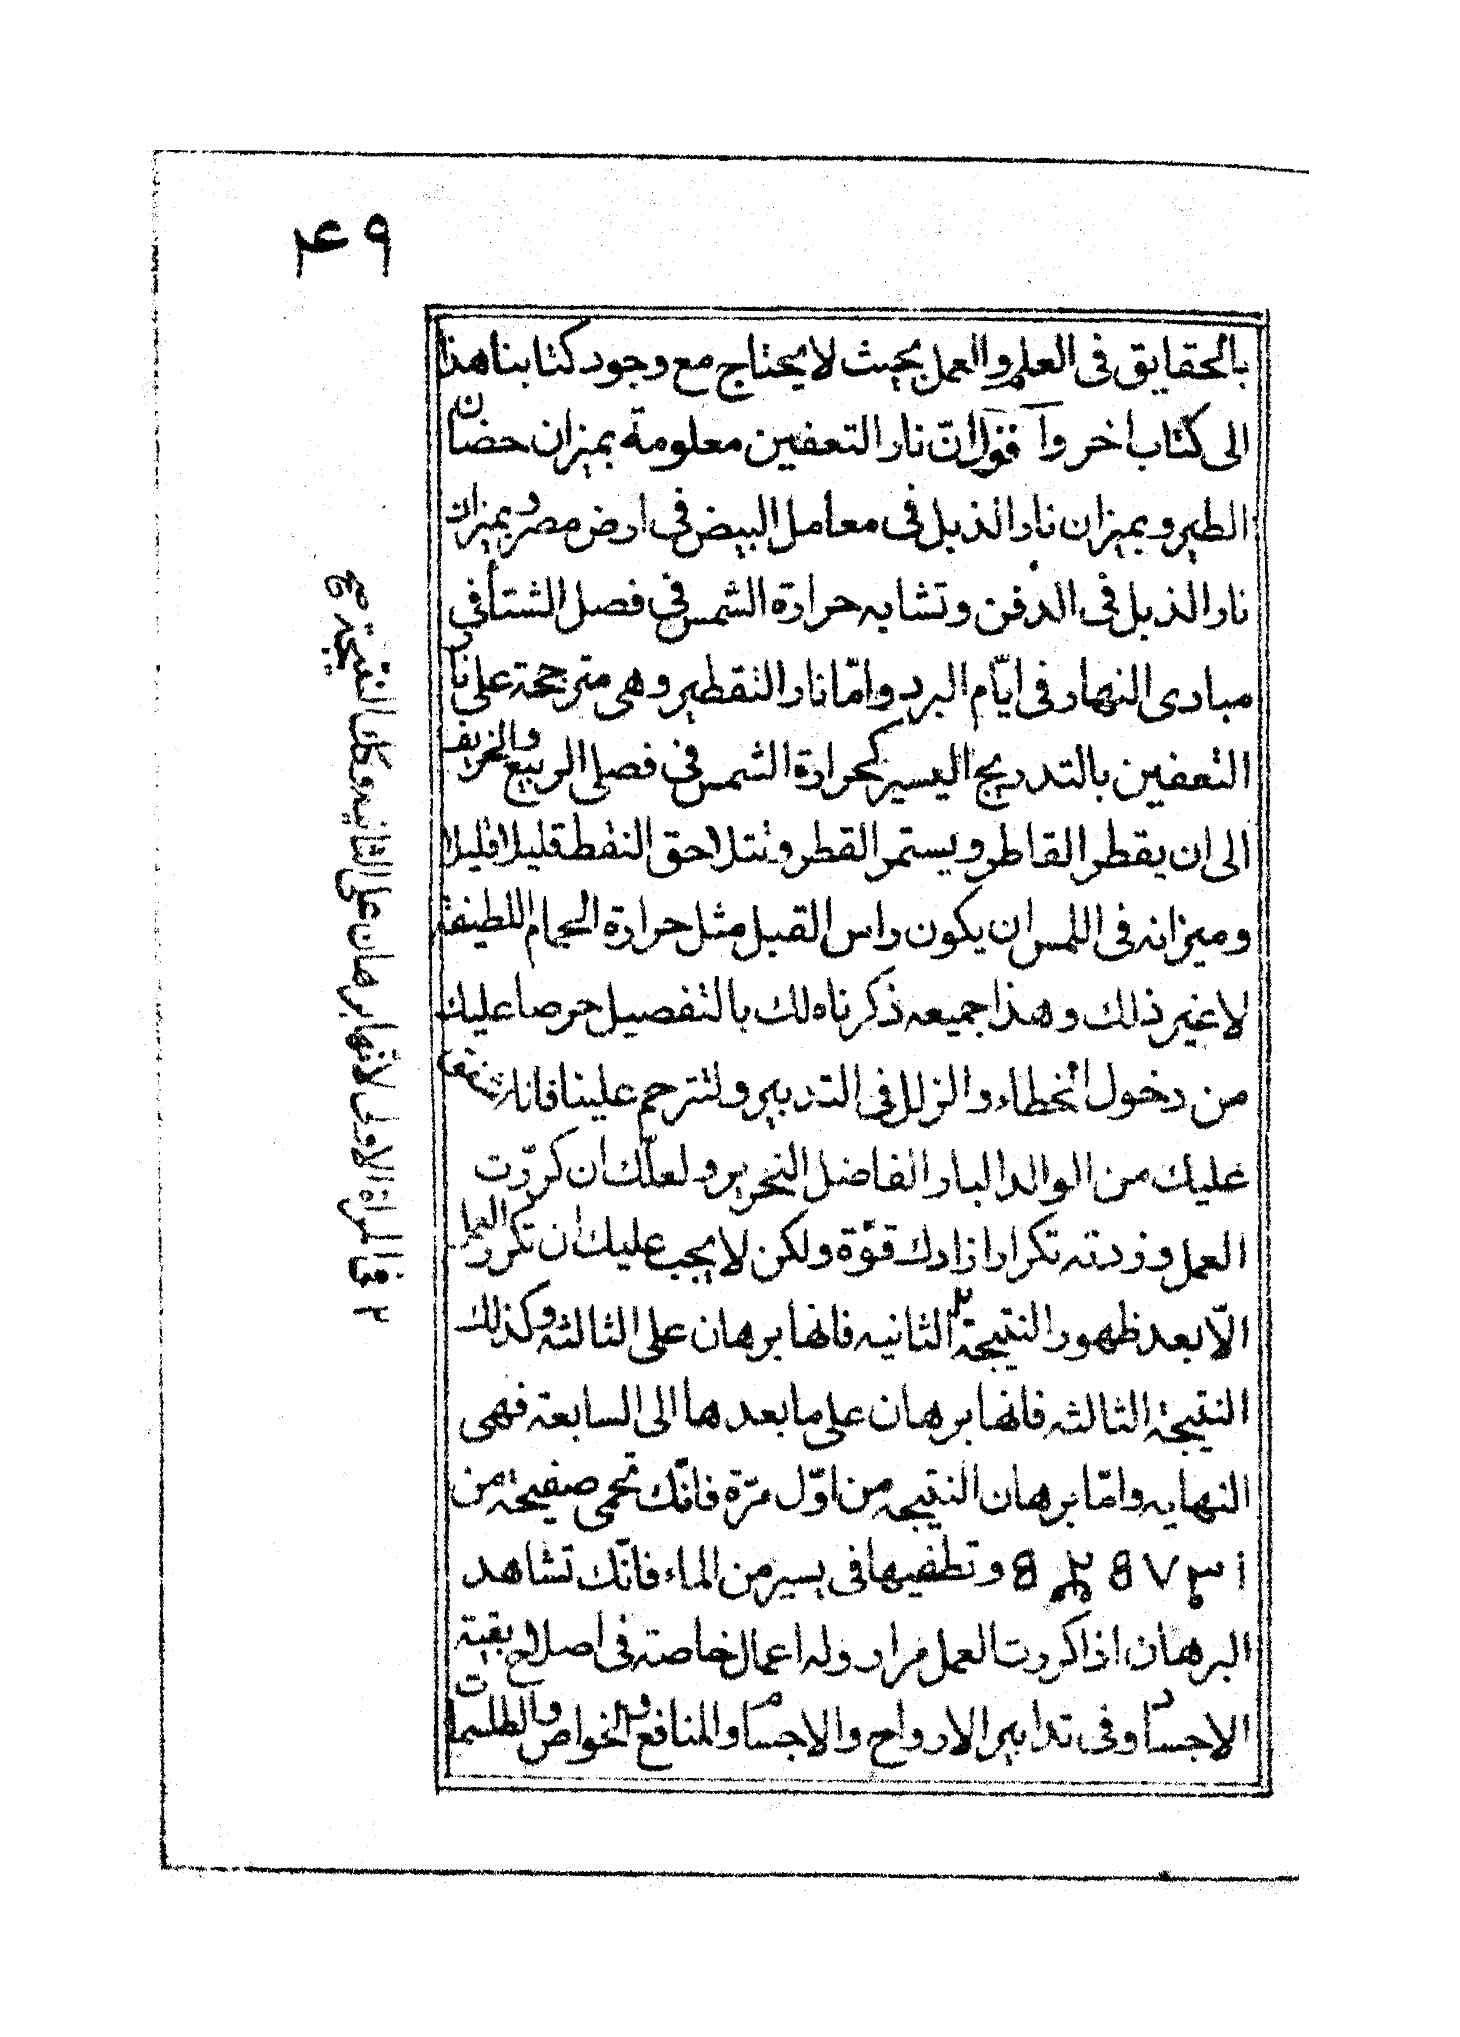 ۴۹
بالحقايق فى العلم والعمل بحيث لا يحتاج مع وجود كتابنا هذا
الى كتاب اخر واقول انّ نار التعفين معلومة بميزان حضان
الطير وبميزان نار الذبل فى معامل البيض فى ارض مصر وبميزان
نار الذبل فى الدفن وتشابه حرارة الشمس فى فصل الشتأ فى
مبادى النهار فى ايّام البرد وامّا نار التقطير وهى مترجحة على نار
التعفين بالتدريج اليسير كحرارة الشمس فى فصلى الربيع والخريف
الى ان يقطر القاطر ويستمر القطر وتتلاحق النقطة قليلا قليلا
وميزانه فى اللمس ان يكون راس القبل مثل حرارة الحمام اللطيفة
لا غير ذلك وهذا جميعه ذكرناه لك بالتفصيل حرصا عليك
من دخول الخطاء والزلل فى التدبير ولتترحم علينا فانا شفقة
عليك من الوالد البار الفاضل النحرير ولعلّك ان كررّت
العمل وزدته تكرارا زادك قوّة ولكن لا يجب عليك ان تكرر العمل
الّا بعد ظهور النتيجة ٢ الثانيه فانها برهان على الثالثه وكذلك
النتيجة الثالثه فانها برهان على ما بعدها الى السابعة فهى
النهايه وامّا برهان النتيجه من اوّل مرّة فانّك تحمى صفيحة من
وتطفيها فى يسير من الماء فانّك تشاهد
البرهان اذا كررت العمل مرار وله اعمال خاصته فى اصلاح بقيّة
الاجساد وفى تدابير الارواح والاجسام والمنافع والخواص والطلسمات
٢ فى المراة الاولى لانها برهان على الثانيه وكك النتيجة صح